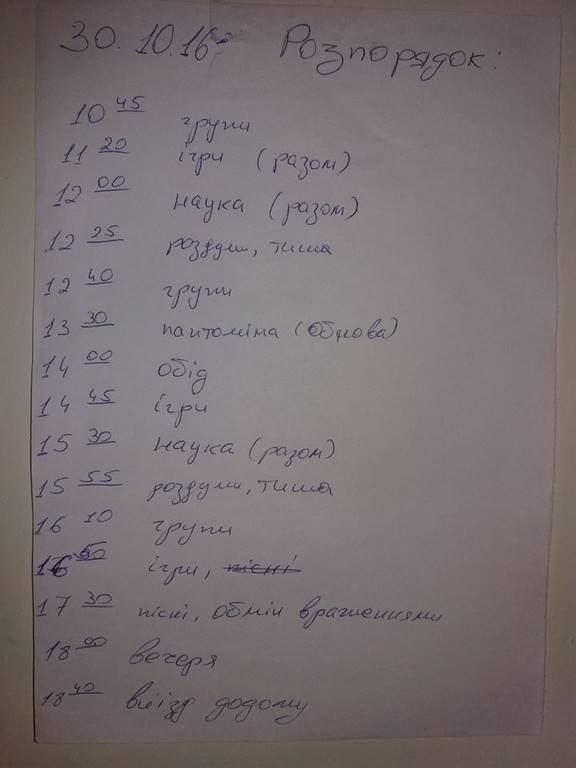 30.10.16 Розпорядок:
10 45 групи
11 20 ігри (разом)
12 00 наука (разом)
12 25 роздуми, тиша
12 40 групи
13 30 пантоміма (Оброва)
14 00 обід
14 45 ігри
15 30 наука (разом)
15 55 роздуми, тиша
16 10 групи
16 50 ігри, пісні
17 30 пісні, обмін враженнями
18 00 вечеря
18 40 виїзд додому